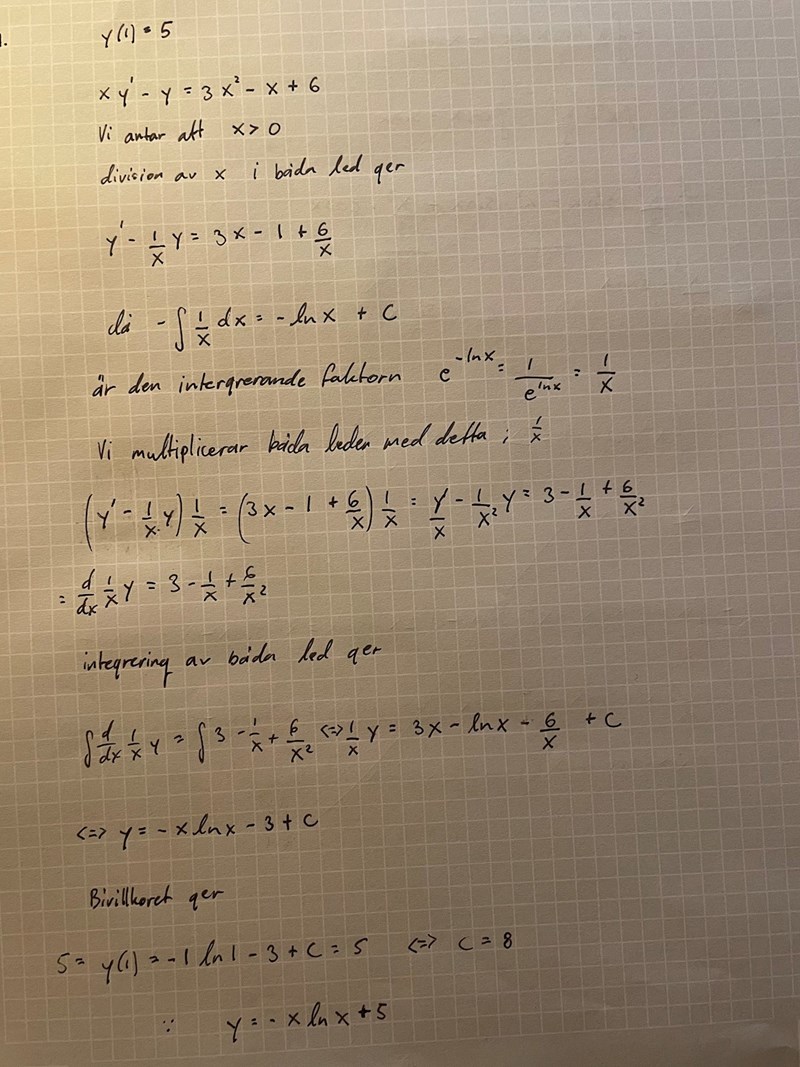 1.
y(1) = 5
xy' - y = 3x² - x + 6
Vi antar att x > 0
division av x i båda led ger
y' - 1/x y = 3x - 1 + 6/x
då - ∫ 1/x dx = - ln x + C
är den intergrerande faktorn e^(-ln x) = 1/e^(ln x) = 1/x
Vi multiplicerar båda leden med detta ; 1/x
(y' - 1/x y) 1/x = (3x - 1 + 6/x) 1/x = y'/x - 1/x² y = 3 - 1/x + 6/x²
= d/dx 1/x y = 3 - 1/x + 6/x²
integrering av båda led ger
∫ d/dx 1/x y = ∫ 3 - 1/x + 6/x² <=> 1/x y = 3x - ln x - 6/x + C
<=> y = - x ln x - 3 + C
Bivillkoret ger
5 = y(1) = -1 ln 1 - 3 + C = 5 <=> C = 8
∵ y = - x ln x + 5